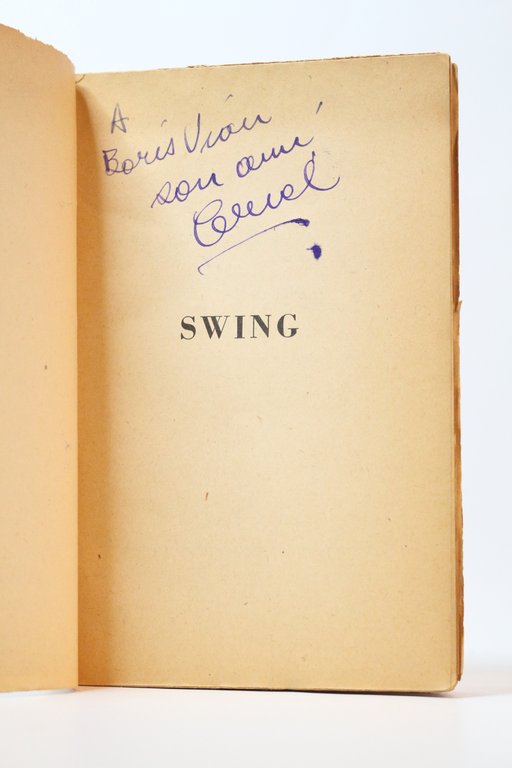 A
Boris Vian
son ami
SWING